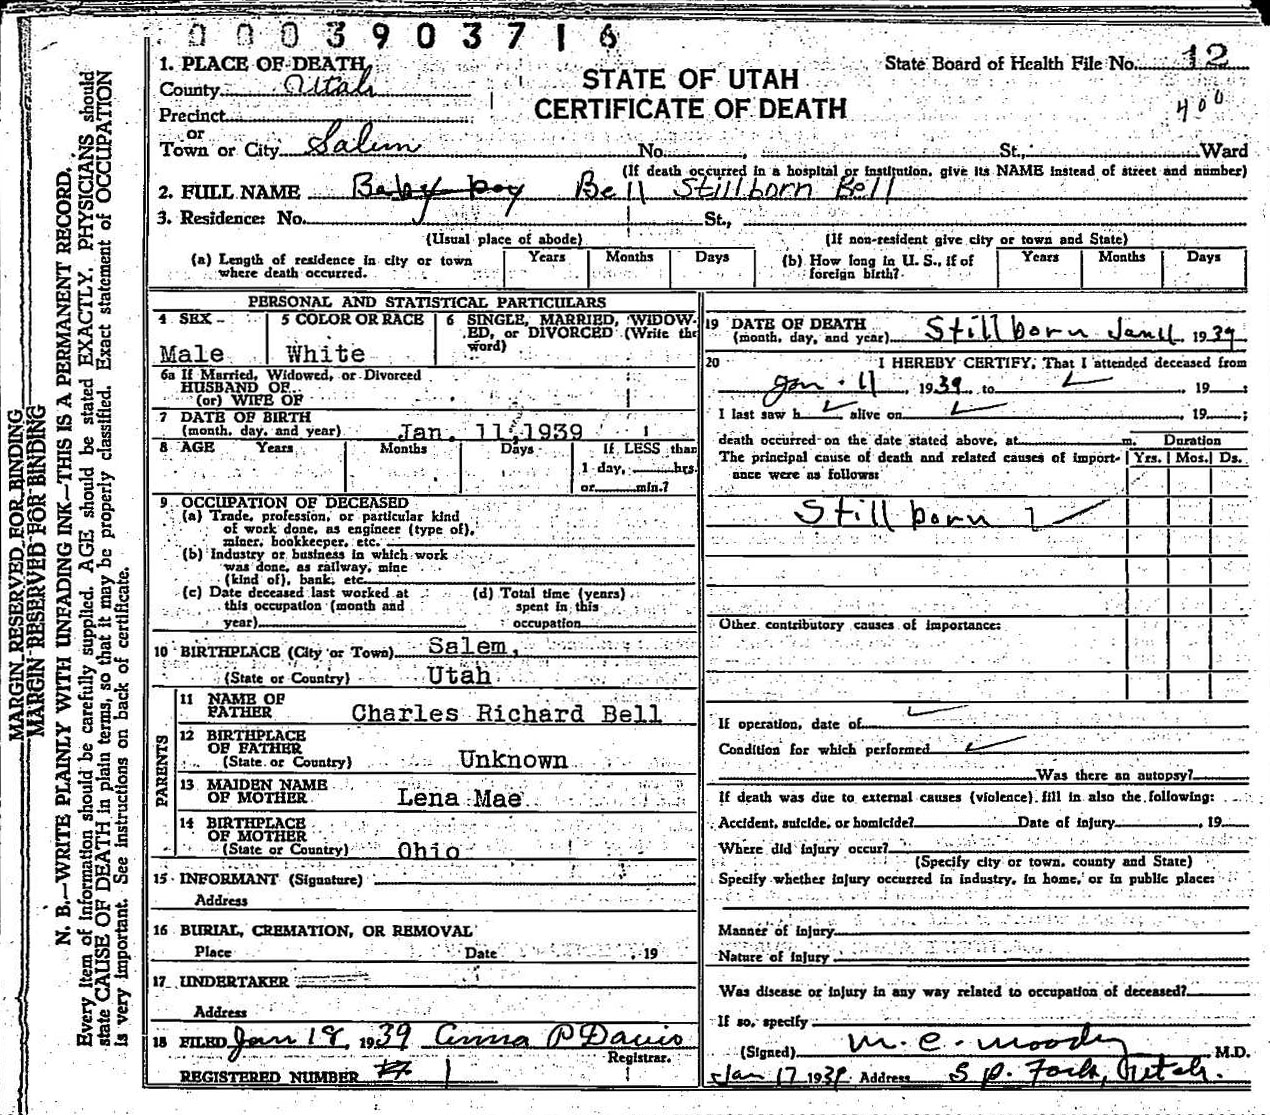 0003903716
1. PLACE OF DEATH
State Board of Health File No. 12
County Utah
STATE OF UTAH
400
Precinct
CERTIFICATE OF DEATH
or
Town or City Salem No. , St., Ward
(If death occurred in a hospital or institution, give its NAME instead of street and number)
2. FULL NAME Baby boy Bell Stillborn Bell
3. Residence: No. St.,
(Usual place of abode) (If non-resident give city or town and State)
(a) Length of residence in city or town where death occurred. Years Months Days (b) How long in U. S., if of foreign birth? Years Months Days
PERSONAL AND STATISTICAL PARTICULARS
4 SEX 5 COLOR OR RACE 6 SINGLE, MARRIED, WIDOW-
ED, or DIVORCED (Write the
word)
Male White
6a If Married, Widowed, or Divorced
HUSBAND OF
(or) WIFE OF
7 DATE OF BIRTH
(month, day, and year) Jan. 11, 1939
8 AGE Years Months Days If LESS than
1 day, hrs.
or min.?
9 OCCUPATION OF DECEASED
(a) Trade, profession, or particular kind
of work done, as engineer (type of),
miner, bookkeeper, etc.
(b) Industry or business in which work
was done, as railway, mine
(kind of), bank, etc.
(c) Date deceased last worked at
this occupation (month and
year)
(d) Total time (years)
spent in this
occupation
10 BIRTHPLACE (City or Town) Salem,
(State or Country) Utah
PARENTS
11 NAME OF
FATHER Charles Richard Bell
12 BIRTHPLACE
OF FATHER
(State or Country) Unknown
13 MAIDEN NAME
OF MOTHER Lena Mae
14 BIRTHPLACE
OF MOTHER
(State or Country) Ohio
15 INFORMANT (Signature)
Address
16 BURIAL, CREMATION, OR REMOVAL
Place Date , 19
17 UNDERTAKER
Address
18 FILED Jan 18, 1939 Anna P Davis
Registrar.
REGISTERED NUMBER 1
19 DATE OF DEATH
(month, day, and year) Stillborn Jan 11 1939
20 I HEREBY CERTIFY, That I attended deceased from
Jan. 11, 1939 to , 19 ;
I last saw h alive on , 19 ;
death occurred on the date stated above, at m. Duration
The principal cause of death and related causes of import- Yrs. Mos. Ds.
ance were as follows:
Stillborn
Other contributory causes of importance:
If operation, date of
Condition for which performed
Was there an autopsy?
If death was due to external causes (violence) fill in also the following:
Accident, suicide, or homicide? Date of injury , 19
Where did injury occur?
(Specify city or town, county and State)
Specify whether injury occurred in industry, in home, or in public place:
Manner of injury
Nature of injury
Was disease or injury in any way related to occupation of deceased?
If so, specify
(Signed) M. C. Moody M.D.
Jan 17 1939 Address Sp. Fork, Utah.
MARGIN RESERVED FOR BINDING
MARGIN RESERVED FOR BINDING
N. B.—WRITE PLAINLY WITH UNFADING INK—THIS IS A PERMANENT RECORD.
Every item of information should be carefully supplied. AGE should be stated EXACTLY. PHYSICIANS should
state CAUSE OF DEATH in plain terms, so that it may be properly classified. Exact statement of OCCUPATION
is very important. See instructions on back of certificate.